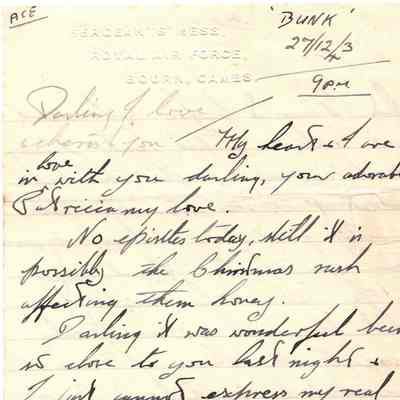 ACE
'BUNK'
SERGEANTS' MESS,
ROYAL AIR FORCE,
BOURN, CAMBS
27/12/43
9pm
Darling I love
& charm you
My heart & I are
in love with you darling, your adorable
Patricia my love.
No epistles today, still it is
possibly the Christmas rush
affecting them honey.
Darling it was wonderful being
so close to you last night &
I just cannot express my real